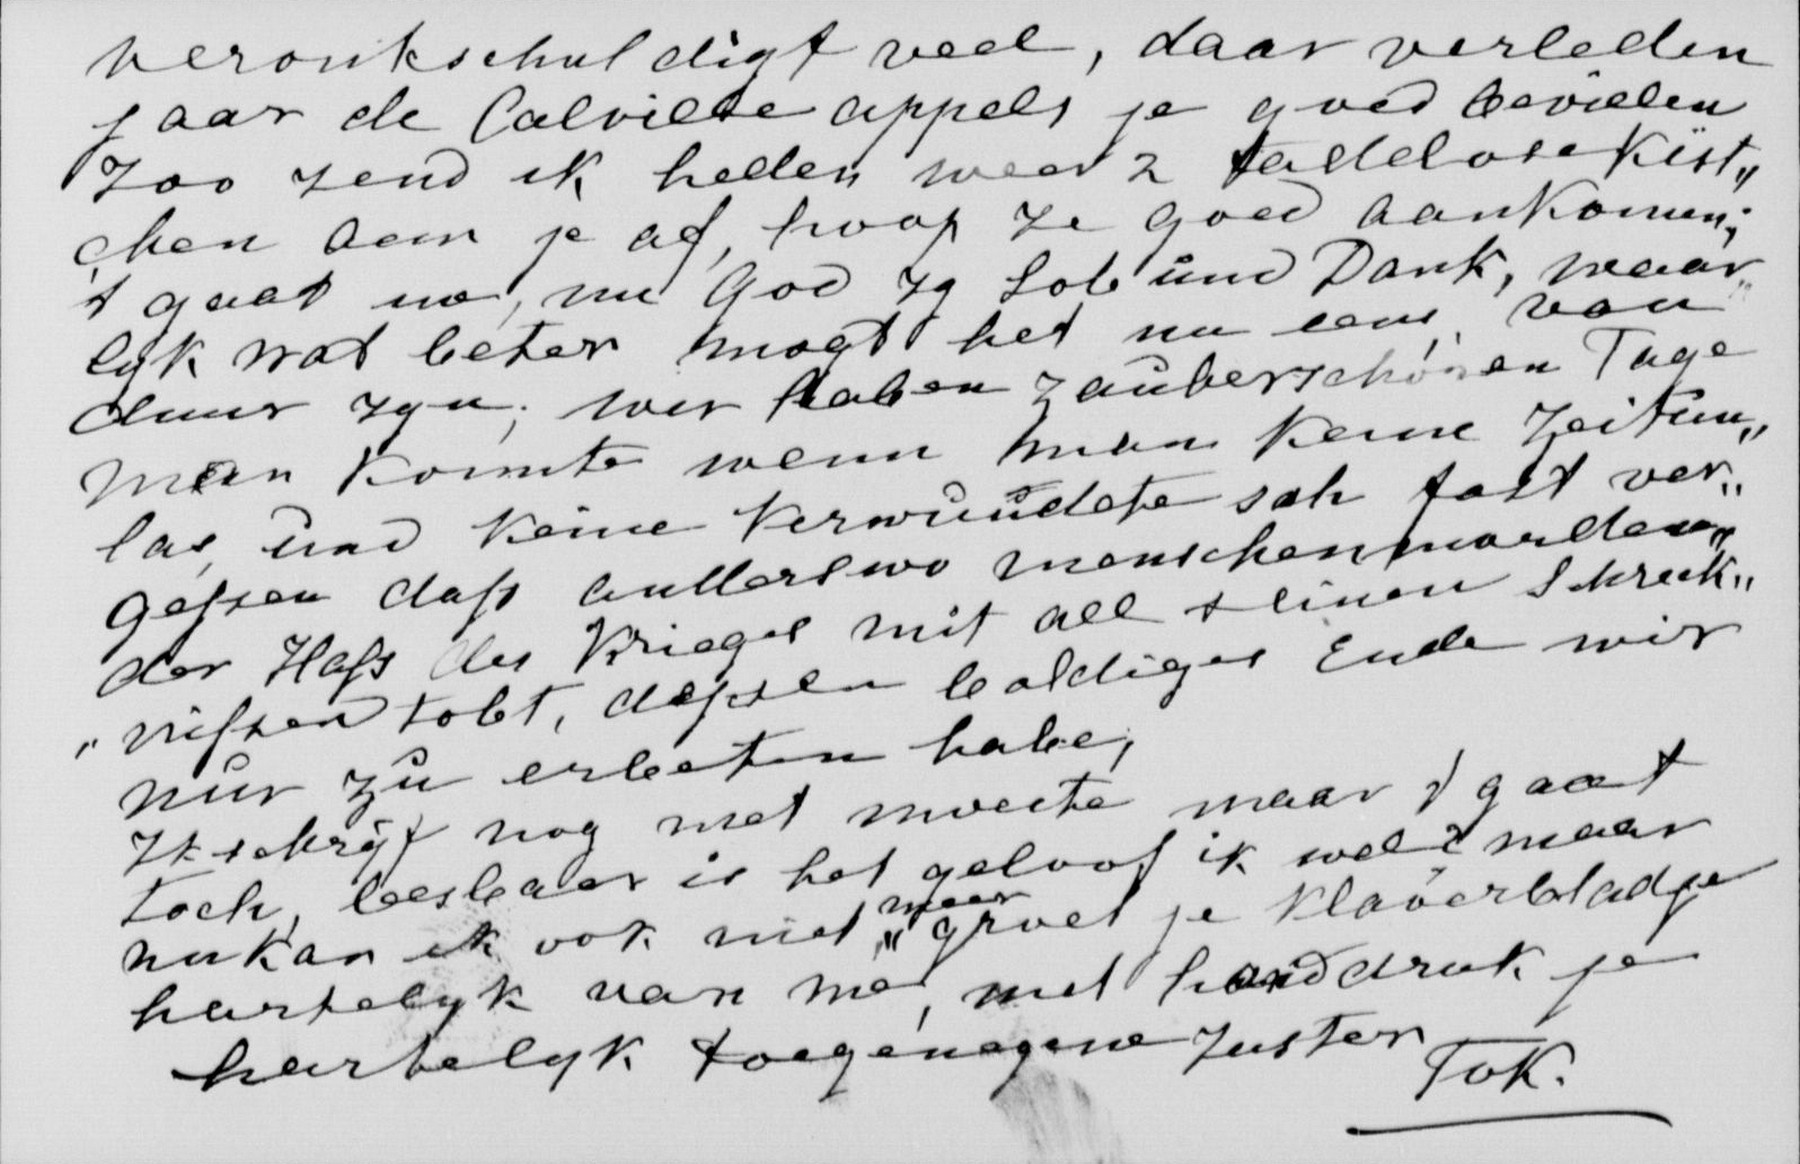 veronkschuldigt veel, daar verleden
jaar de Calville appels je goed bevielen
Zoo zend ik heden weer 2 tadellose Kist„
chen aan je af, hoop ze goed aankomen;
't gaat me, nu God zy Lob und Dank, waar„
lyk wat beter mogt het nu eens van
duur zyn; wir haben zauberschönen Tage
man konnte wenn man keine Zeitun„
las, und keine Verwundete sah fast ver„
gessen dass anderswo menschenmorden„
der Hass des Krieges mit all seinen Schreck„
„nissen tobt, dessen baldiges Ende wir
nur zu erbeten habe,
Ik schryf nog met moeite maar 't gaat
toch, leesbaar is het geloof ik wel? maar
nu kan ik ook niet „meer groet je Klaverbladje
hartelyk van me, met handdruk je
hartelyk toegenegene Zuster Tok.